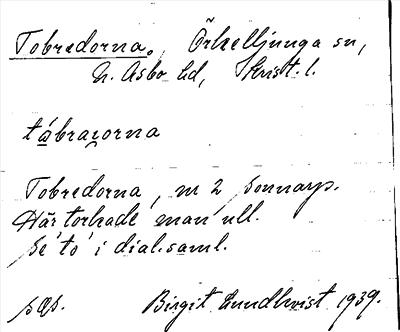 Tobredorna. Örkelljunga sn,
N. Åsbo hd, Krist. l.
tåbraɪorna
Tobredorna, m 2 Sonnarp.
Här torkade man ull.
Se to i dial.saml.
sgs. Birgit Lundkvist 1939.